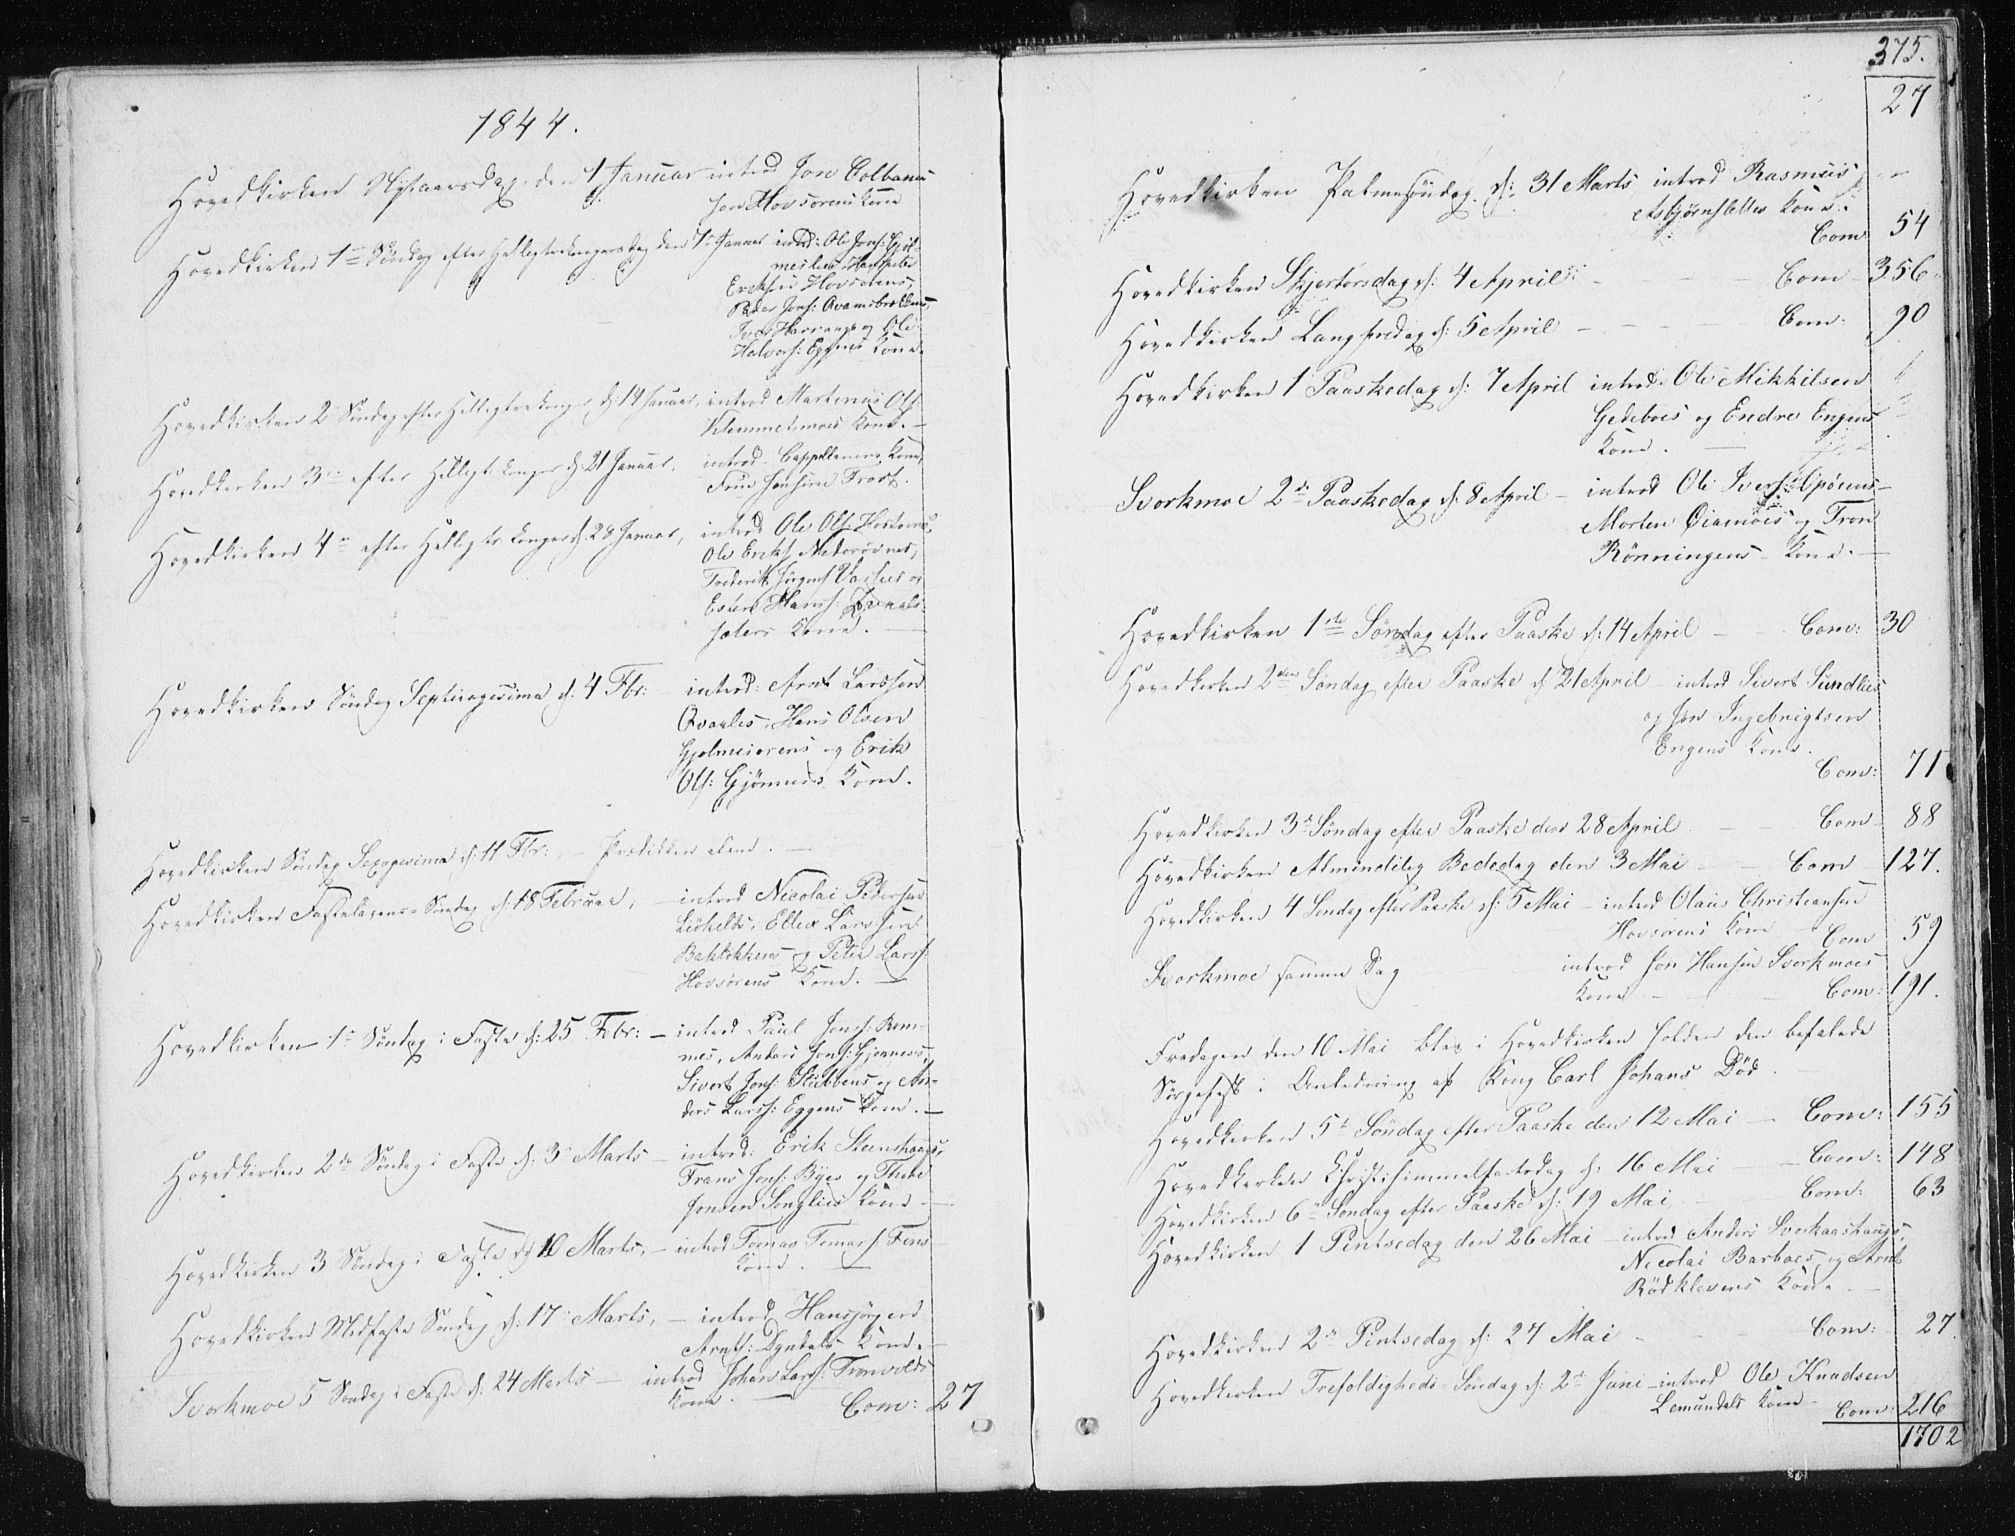 1844.
Hovedkirken Nytaarsdag den 1 Januar introd Jon Colbans
Jon Hovsørens Kone
Hovedkirken 1ste Søndag efter Helligtrekongersdag den 7 Januar introd: Ole Jons: Gjøl-
meslies, Hans Peter
Eriksen Hovsørens,
Peder Jons: Qvamsbrekkens,
Iver Harrangs og Ole
Halvors: Eggens Kone.
Hovedkirken 2 Søndag efter Helligtrekonger d: 14 Januar, introd Martinus Ols:
Klemmetsmoes Kone. —
Hovedkirken 3die efter Helligt. Konger d: 21 Januar, introd. Cappellanens Kone,
Frue Hansine Frost.
Hovedkirken 4de efter Helligtr. Konger d: 28 Januar, introd Ole Ols: Hostons
Ole Eriks: Nederøvnes,
Frederik Jørgens: Vaslies og
Esten Hans: Qvaals-
sæters Kone. —
Hovedkirken Søndag Septuagesima d: 4 Fbr: introd: Arnt Larssen
Qvaales, Hans Olsen
Gjølmeiorens og Erik
Ols: Gjønnes Kone.
Hovedkirken Søndag Sexagesima d: 11 Fbr: — Prædiken alene. —
Hovedkirken Fastelavens-Søndag d: 18 Februar, — introd Nicolai Pedersen
Likhelds, Ellev Larssen
Bakløkkens og Peter Larss:
Hovsørens Kone. —
Hovedkirken 1ste Søndag i Faste d: 25 Febr: — introd Paul Jons: Rom-
mes, Anders Jons: Gjønnes,
Sivert Jons: Stubbens og An-
ders Larss: Eggens Kone. —
Hovedkirken 2den Søndag i Faste d: 3 Marts — introd: Erik Steenshaugs,
Frans Jons: Byes og Thebe
Jonsen Songlies Kone —
Hovedkirken 3 Søndag i Faste d: 10 Marts, — introd Tomas Tomass: Fens
Kone. —
Hovedkirken Midfaste Søndag d: 17 Marts, — introd Hansjørgen
Arnts: Dyndals Kone. —
Svorkmoe 5 Søndag i Faste d: 24 Marts — introd Johan Lars: Tronvolds
Kone. — Com: 27
375.
27
Hovedkirken Palmesøndag d: 31 Marts introd Rasmus
Asbjørnslettes Kone.
Com 54
Hovedkirken Skjertorsdag d: 4 April — — — Com — 356
Hovedkirken Langfredag d: 5 April — — — Com: 90
Hovedkirken 1 Paaskedag d: 7 April introd: Ole Mikkelsen
Gedeboes og Endre Engens
Kone. —
Svorkmoe 2den Paaskedag d: 8 April — introd Ole Ivers: Opørens
Morten Øiamoes og Tron
Rönningens Kone. —
Hovedkirken 1ste Søndag efter Paaske d: 14 April — Com: 30
Hovedkirken 2den Søndag efter Paaske d: 21 April — introd Sivert Sundlies
og Jon Ingebrigtsen
Engens Kone.
Com: 71
Hovedkirken 3de Søndag efter Paaske den 28 April — Com — 88
Hovedkirken Almindelig Bededag den 3 Mai — Com — 127.
Hovedkirken 4 Søndag efter Paaske d: 5 Mai — introd Olaus Christiansen
Hovsørens Kone — Com 59
Svorkmoe samme Dag introd Jon Hansen Svorkmoes
Kone — Com: 191.
Fredagen den 10 Mai blev i Hovedkirken holden den befalede
Sørgefest i Anledning af Kong Carl Johans Død. —
Hovedkirken 5te Søndag efter Paaske den 12 Mai — Com: 155
Hovedkirken Christihimmelfartsdag d: 16 Mai — Com: 148
Hovedkirken 6te Søndag efter Paaske d: 19 Mai — Com: 63
Hovedkirken 1 Pintsedag den 26 Mai — introd Anders Svorkaashaugs,
Nicolai Barboes og Arnt
Rödklevens Kone. —
Hovedkirken 2den Pintsedag d: 27 Mai — Com: 27
Hovedkirken Trefoldigheds Søndag d: 2den Juni — introd Ole Knudsen
Lomundals Kone — Com: 216
1702